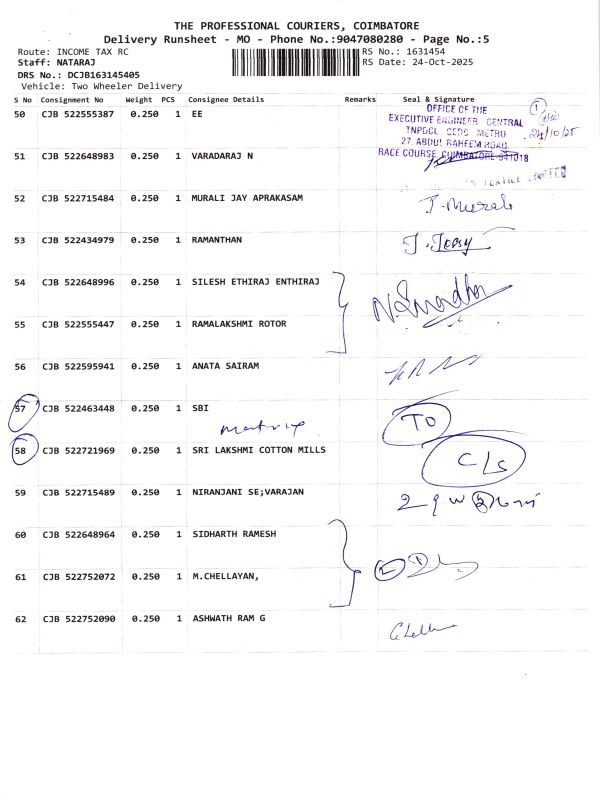 THE PROFESSIONAL COURIERS, COIMBATORE
Delivery Runsheet - MO - Phone No.:9047080280 - Page No.:5
Route: INCOME TAX RC
RS No.: 1631454
Staff: NATARAJ
RS Date: 24-Oct-2025
DRS No.: DCJB163145405
Vehicle: Two Wheeler Delivery
S No Consignment No Weight PCS Consignee Details Remarks Seal & Signature
50 CJB 522555387 0.250 1 EE
OFFICE OF THE
EXECUTIVE ENGINEER CENTRAL
TNPDCL CEDC METRO
27. ABDUL RAHEEM ROAD
RACE COURSE, COIMBATORE-641018
1
24/10/25
51 CJB 522648983 0.250 1 VARADARAJ N
TEXTILE LIMITED
52 CJB 522715484 0.250 1 MURALI JAY APRAKASAM
J. Murali
53 CJB 522434979 0.250 1 RAMANTHAN
54 CJB 522648996 0.250 1 SILESH ETHIRAJ ENTHIRAJ
55 CJB 522555447 0.250 1 RAMALAKSHMI ROTOR
56 CJB 522595941 0.250 1 ANATA SAIRAM
57 CJB 522463448 0.250 1 SBI
matrix
TO
58 CJB 522721969 0.250 1 SRI LAKSHMI COTTON MILLS
C/S
59 CJB 522715489 0.250 1 NIRANJANI SE;VARAJAN
60 CJB 522648964 0.250 1 SIDHARTH RAMESH
61 CJB 522752072 0.250 1 M.CHELLAYAN,
62 CJB 522752090 0.250 1 ASHWATH RAM G